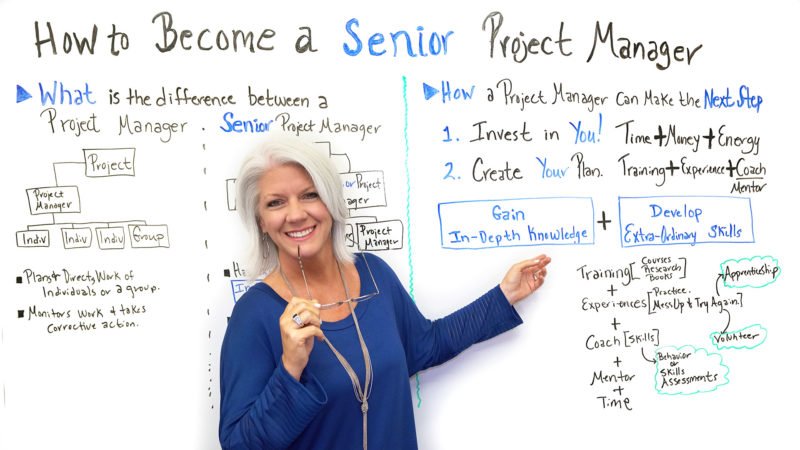 How to Become a Senior Project Manager
What is the difference between a
Project Manager. Senior Project Manager
Project
Project Manager
Indiv Indiv Indiv Group
Plans & Directs Work of
Individuals or a group.
Monitors Work & takes
corrective action.
Project
Project Manager
How a Project Manager Can Make the Next Step
1. Invest in You! Time + Money + Energy
2. Create Your Plan. Training + Experience + Coach
Mentor
Gain
In-Depth Knowledge
+
Develop
Extra-Ordinary Skills
Training [Courses
Research
Books]
+
Experiences [Practice.
Mess Up & Try Again.]
Apprenticeship
Volunteer
+
Coach [Skills]
Behavior
or
Skills
Assessments
+
Mentor
+
Time